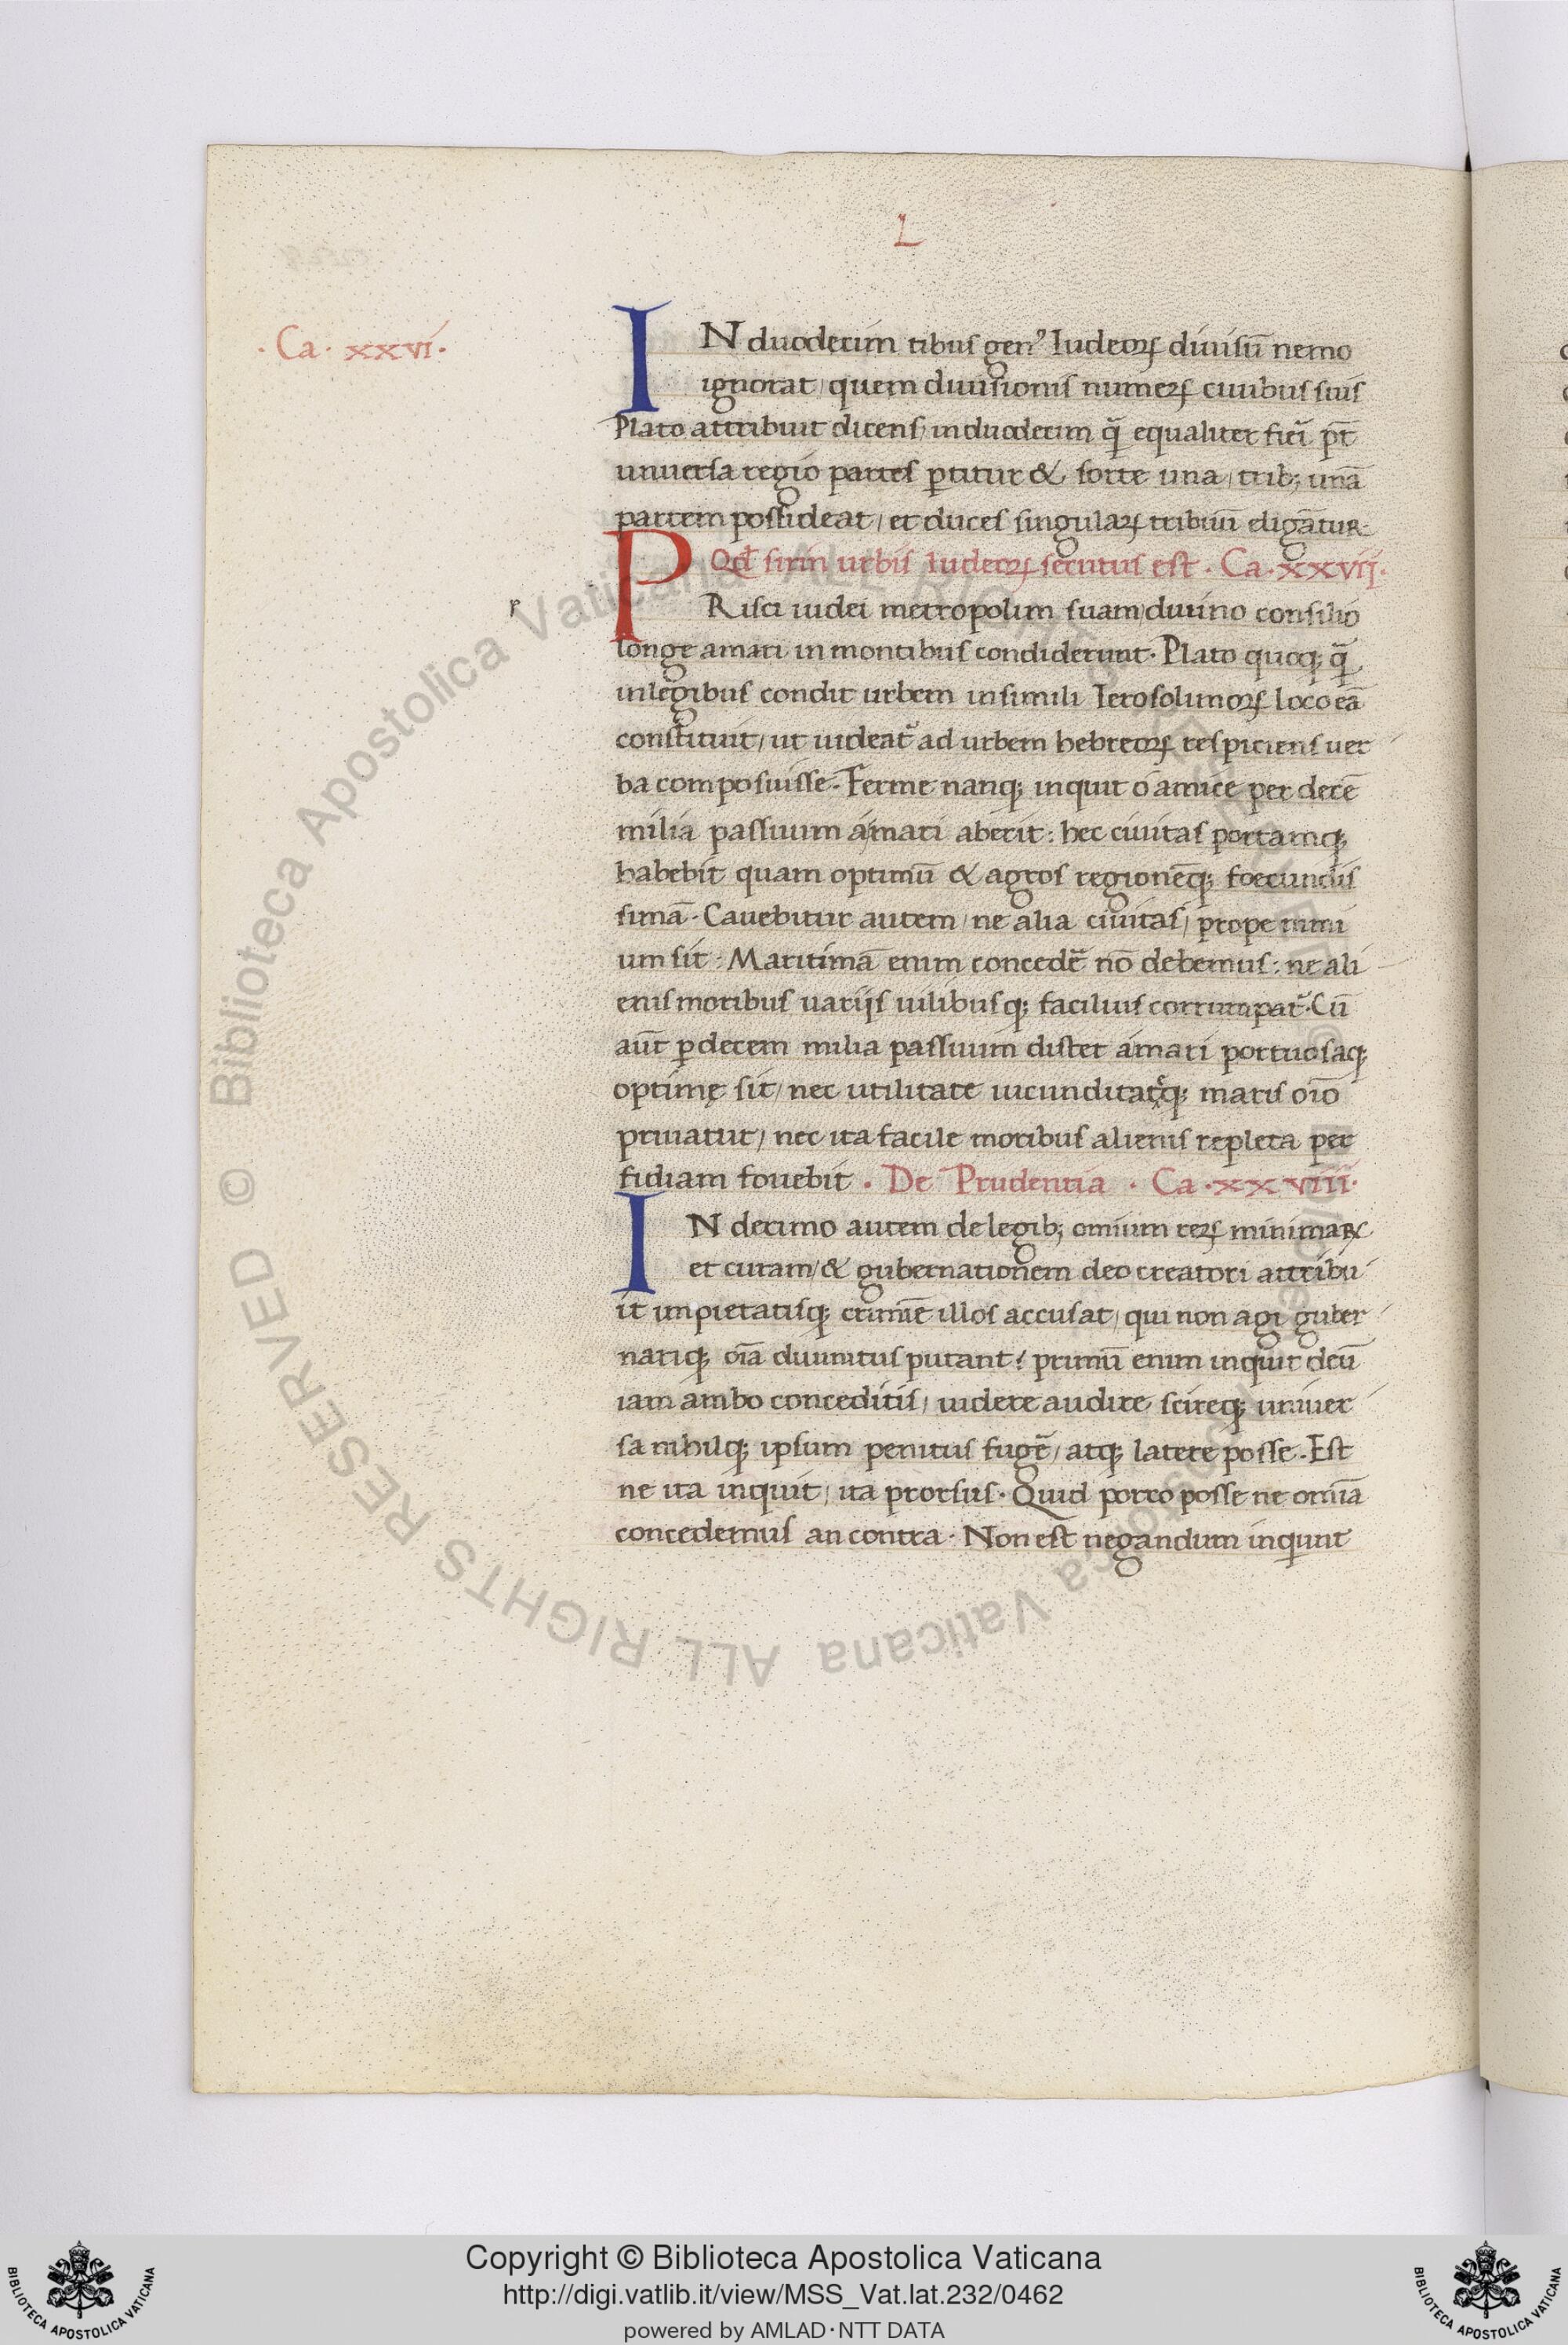 L
· Ca · xxvi ·
IN duodecim tibus genꝰ Iudeoꝝ diuisū nemo
ignorat, quem diuisionis numeꝝ ciuibus suis
Plato attribuit dicens, in duodecim q̄ equaliter fieri p̄t
uniuersa regio partes ꝑtitur & sorte una, trib; unā
partem possideat, et duces singulaꝝ tribuū eligātur
Qđ sitin urbis Iudeoꝝ secutus est · Ca · xxvij ·
r
PRisci iudei metropolim suam, diuino consilio
longe amari in montibus condiderunt · Plato quoq; q̄
in legibus condit urbem in simili Ierosolimoꝝ loco eā
constituit, ut uideat᷑ ad urbem hebreoꝝ respiciens uer
ba composuisse · Ferme nanq; inquit o amice per decē
milia passuum a mari aberit : hec ciuitas portamq;
habebit quam optimū & agros regionēq; foecundis
simā · Cauebitur autem, ne alia ciuitas, prope nimi
um sit : Maritimā enim concedē no᷒̄ debemus : ne ali
enis moribus uarijs uilibusq; facilius corrumpat᷑ · Cū
aūt ꝑ decem milia passuum distet a mari portuosaq;
optimę sit, nec utilitate iucunditateq; maris oīo
priuatur, nec ita facile moribus alienis repleta per
fidiam fouebit · De Prudentia · Ca · xxviii ·
IN decimo autem de legib; omium reꝝ minimaꝝ
et curam, & gubernationem deo creatori attribu
it impietatisq; crimīe illos accusat, qui non agi guber
nariq; oīa diuinitus putant : primū enim inquit deū
iam ambo conceditis, uidere audire scireq; uniuer
sa nihilq; ipsum penitus fugē, atq; latere posse · Est
ne ita inquit, ita prorsus · Quid porro posse ne omīa
concedemus an contra · Non est negandum inquit
Copyright © Biblioteca Apostolica Vaticana
http://digi.vatlib.it/view/MSS_Vat.lat.232/0462
powered by AMLAD·NTT DATA
BIBLIOTECA APOSTOLICA VATICANA
BIBLIOTECA APOSTOLICA VATICANA
Biblioteca Apostolica Vaticana ALL RIGHTS RESERVED ©